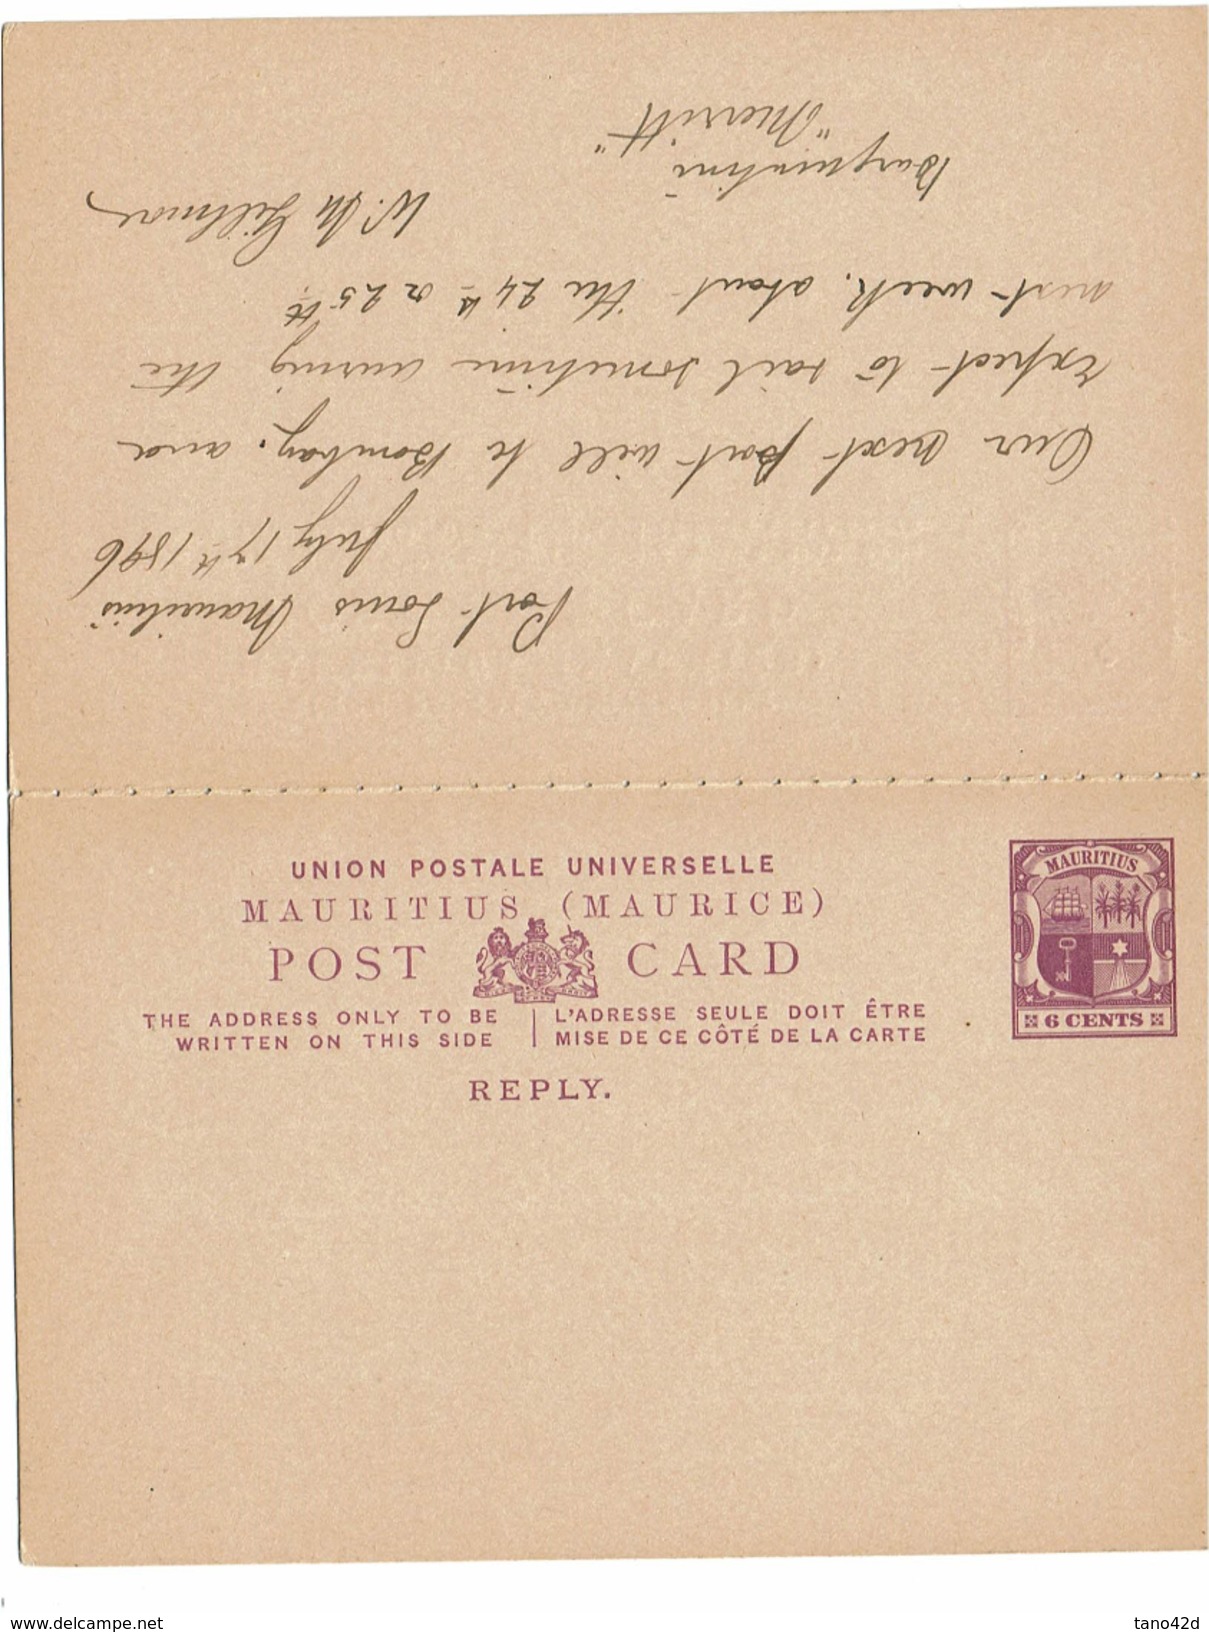 Port Louis Mauritius
July 17th 1896
Our next port will be Bombay. and
expect to sail sometime during the
next week. about the 24th or 25th
W. M Gillmor
Barquentine
"Meritt"
UNION POSTALE UNIVERSELLE
MAURITIUS (MAURICE)
POST CARD
THE ADDRESS ONLY TO BE
WRITTEN ON THIS SIDE
L'ADRESSE SEULE DOIT ÊTRE
MISE DE CE CÔTÉ DE LA CARTE
REPLY.
MAURITIUS
6 CENTS
www.delcampe.net
tano42d